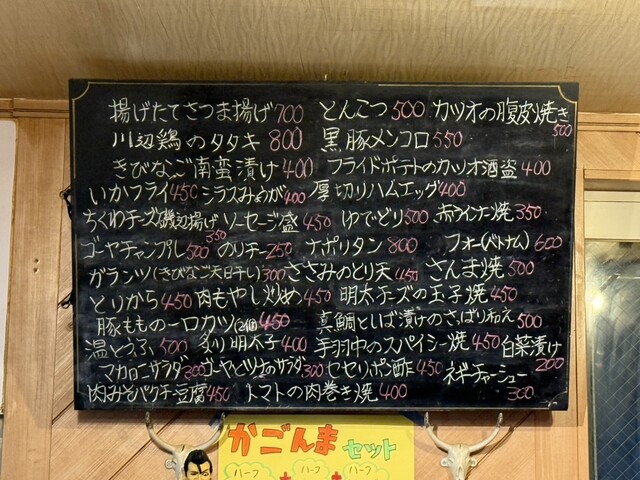 揚げたてさつま揚げ700 とんこつ500 カツオの腹皮焼き500
川辺鶏のタタキ 800 黒豚メンコロ550
きびなご南蛮漬け400 フライドポテトのカツオ酒盗400
いかフライ450 シラスみょうが400 厚切りハムエッグ400
ちくわチーズ磯辺揚げ350 ソーセージ盛450 ゆでどり500 赤ウインナー焼350
ゴーヤチャンプル500 のりチー250 ナポリタン800 フォー(ベトナム)600
ガランツ(きびなご天日干し)300 ささみのとり天450 さんま焼500
とりから450 肉もやし炒め450 明太チーズの玉子焼450
豚ももの一口カツ(2個)450 真鯛としば漬けのさっぱり和え500
温とうふ500 炙り明太子400 手羽中のスパイシー焼450 白菜漬け200
マカロニサラダ300 ゴーヤとツナのサラダ300 セセリポン酢450 ネギチャーシュー300
肉みそパクチー豆腐450 トマトの肉巻き焼400
かごんまセット
ハーフ+ハーフ+ハーフ